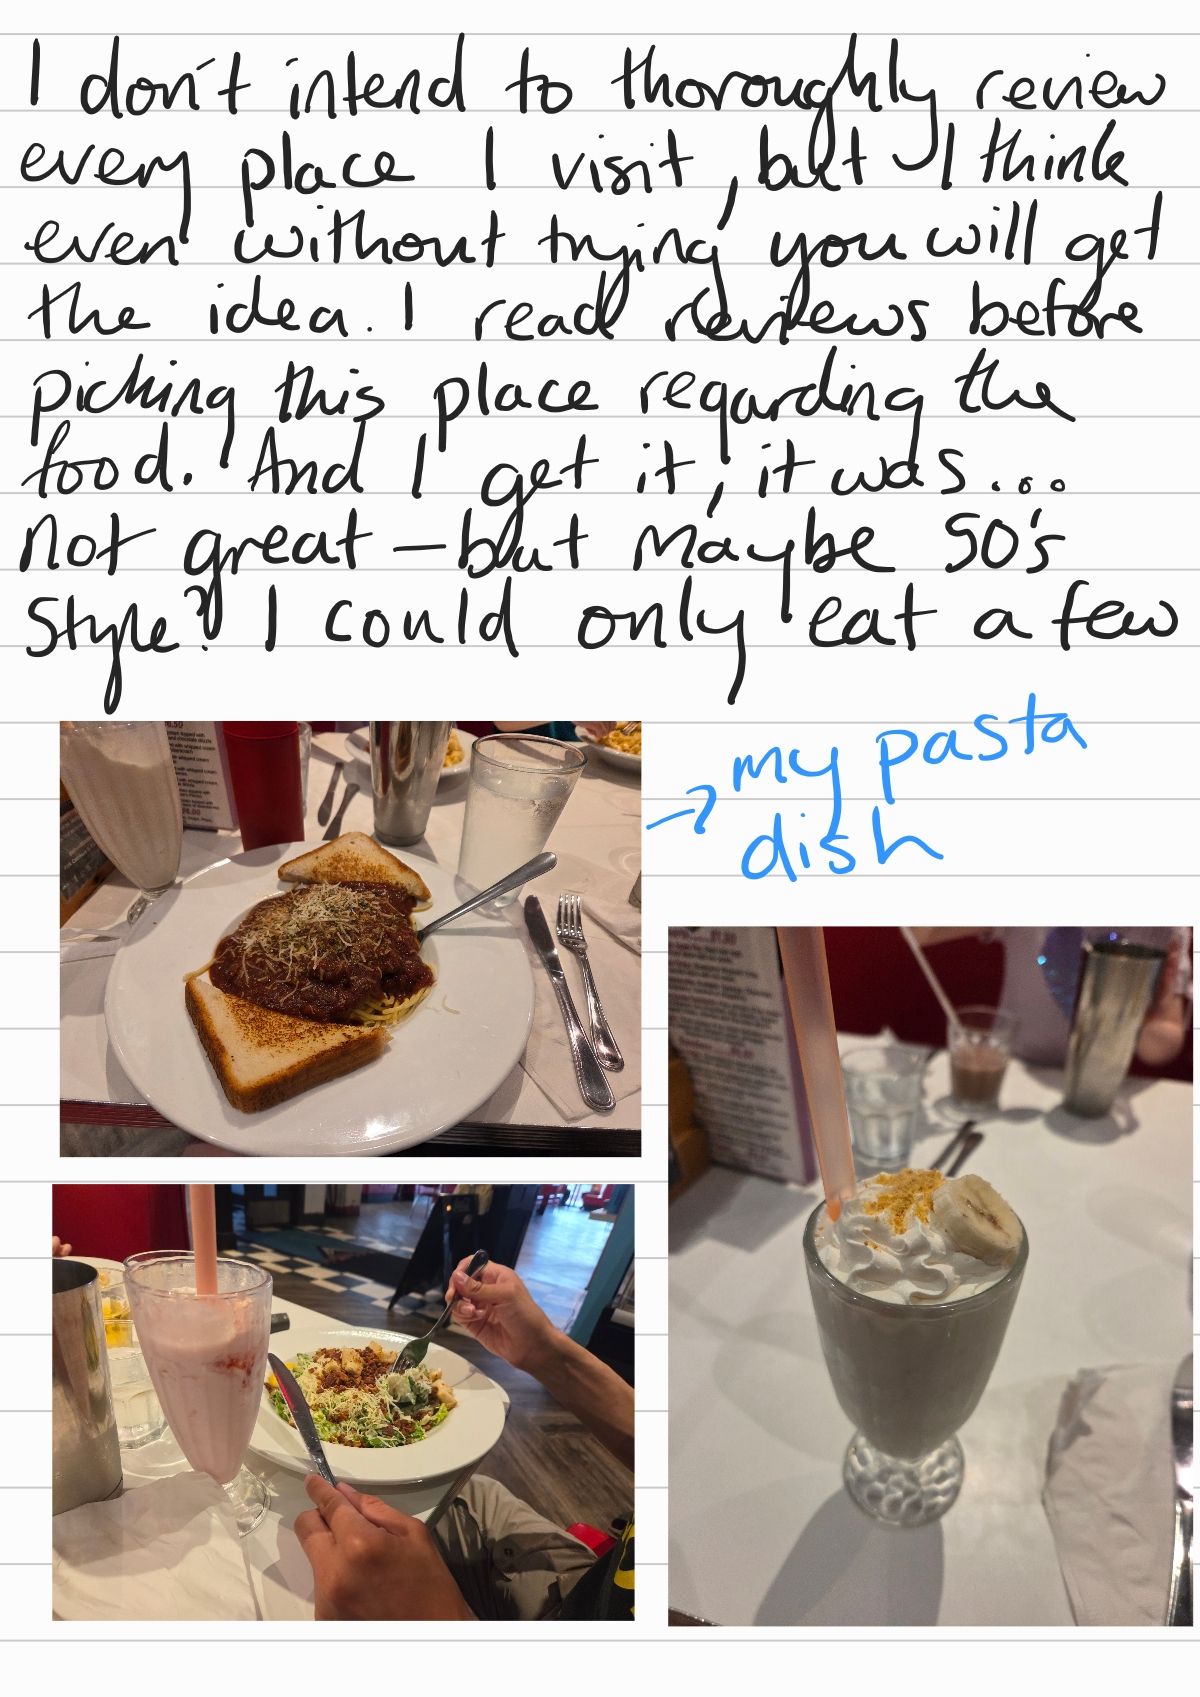 I don't intend to thoroughly review
every place I visit, but I think
even without trying you will get
the idea. I read reviews before
picking this place regarding the
food. And I get it, it was...
not great — but maybe 50's
style? I could only eat a few
my pasta
dish